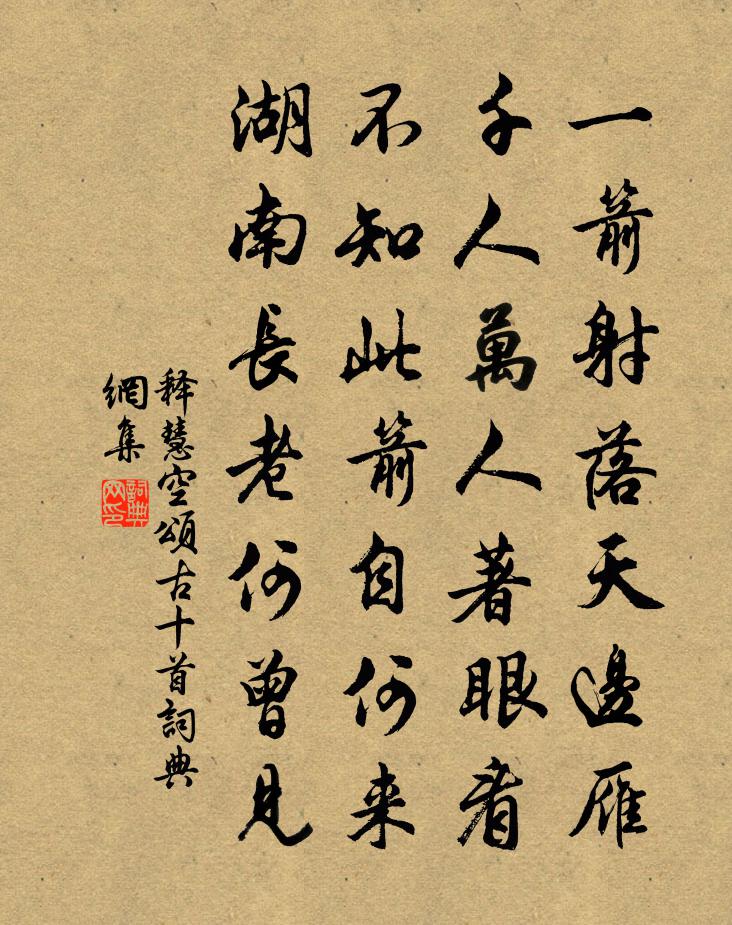 一箭射落天邊雁
千人萬人著眼看
不知此箭自何来
湖南長老何曾見
释慧空頌古十首詞典
網集
詞典
网印